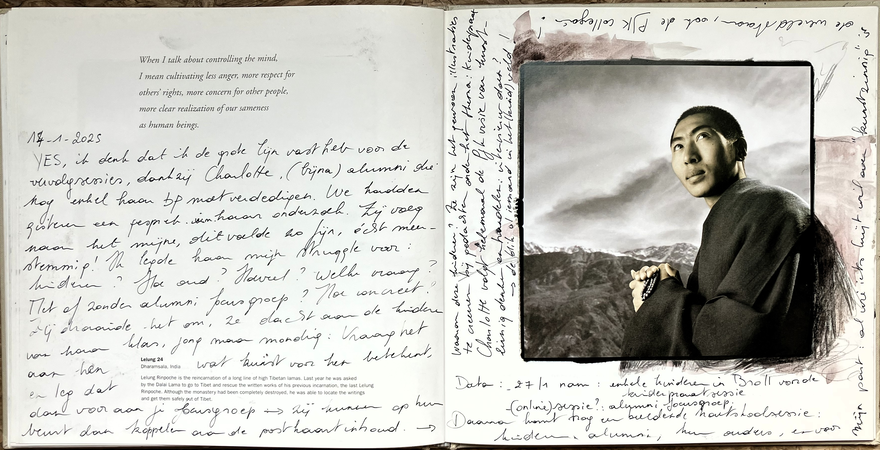 When I talk about controlling the mind,
I mean cultivating less anger, more respect for
others' rights, more concern for other people,
more clear realization of our sameness
as human beings.
17-1-2025
YES, ik denk dat ik de grote lijn vast heb voor de
vervolgsessies, dankzij Charlotte, (bijna) alumni die
nog enkel haar bp moet verdedigen. We hadden
gisteren een gesprek haar onderzoek. Zij voeg
naar het mijne, dit voelde zo fijn, echt meer-
stemmig! Ik legde haar mijn struggle voor:
kinderen? Hoe oud? Hoeveel? Welke vraag?
Met of zonder alumni focusgroep? Hoe concreet?
Zij draaide het om, ze dacht aan de kinderen
van haar klas, jong maar mondig: Vraag het
aan hen wat kunst voor hen betekent,
en leg dat
Lelung 24
Dharamsala, India
Lelung Rinpoche is the reincarnation of a long line of high Tibetan lamas. Last year he was asked
by the Dalai Lama to go to Tibet and rescue the written works of his previous incarnation, the last Lelung
Rinpoche. Although the monastery had been completely destroyed, he was able to locate the writings
and get them safely out of Tibet.
dan voor aan je focusgroep → zij kunnen op hun
beurt dan koppelen aan de postkaart inhoud. →
Waarom deze kinderen? Ze zijn het gewoon illustraties
te creëren bij gedachten onder het thema: kinderpraat
Charlotte volgt helemaal de visie van kunst-
zinnig denken en handelen,
→ de blik al iemand in het
de wereld staan, ook de PJK collega's!
mijn part al wie iets kwijt wil over "kunstzinnig"
Data: 27/1 nam: enkele kinderen in Broll voor de
kinderpraatsessie
(online) sessie?: alumni focusgroep,
Daarna komt nog een beeldende houtskoolsessie:
kinderen, alumni, hun ouders, en voor